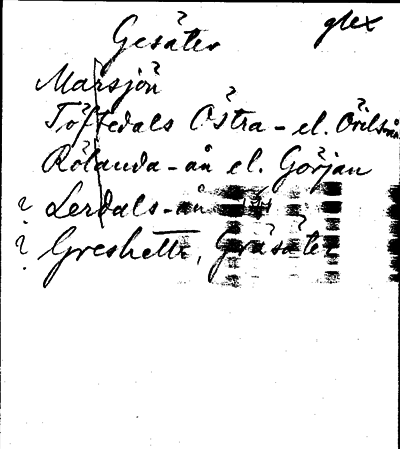 glex
Gesäter
Marsjön
Töftedals Östra - el. Örilsån
Rölanda - ån el. Görjan
? Lerdals - ån
? Greskett, Gräsäter